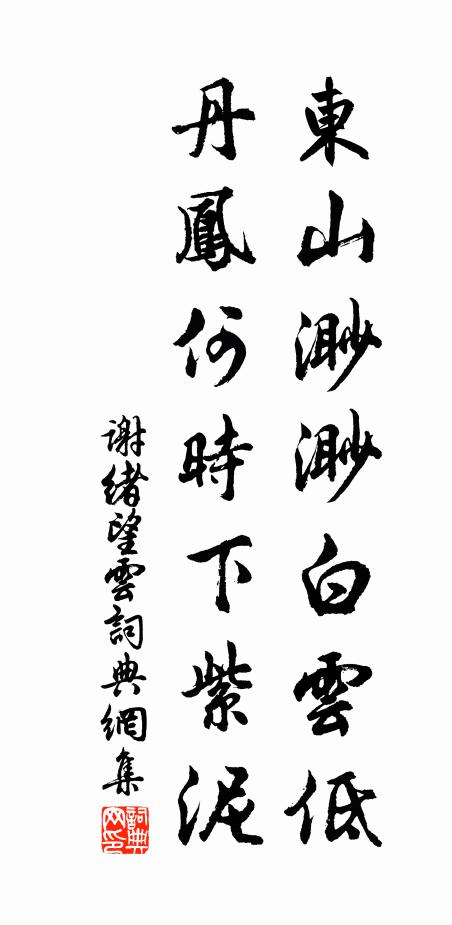 東山渺渺白雲低
丹鳳何時下紫泥
謝緒望雲詞典網集
詞典
网印